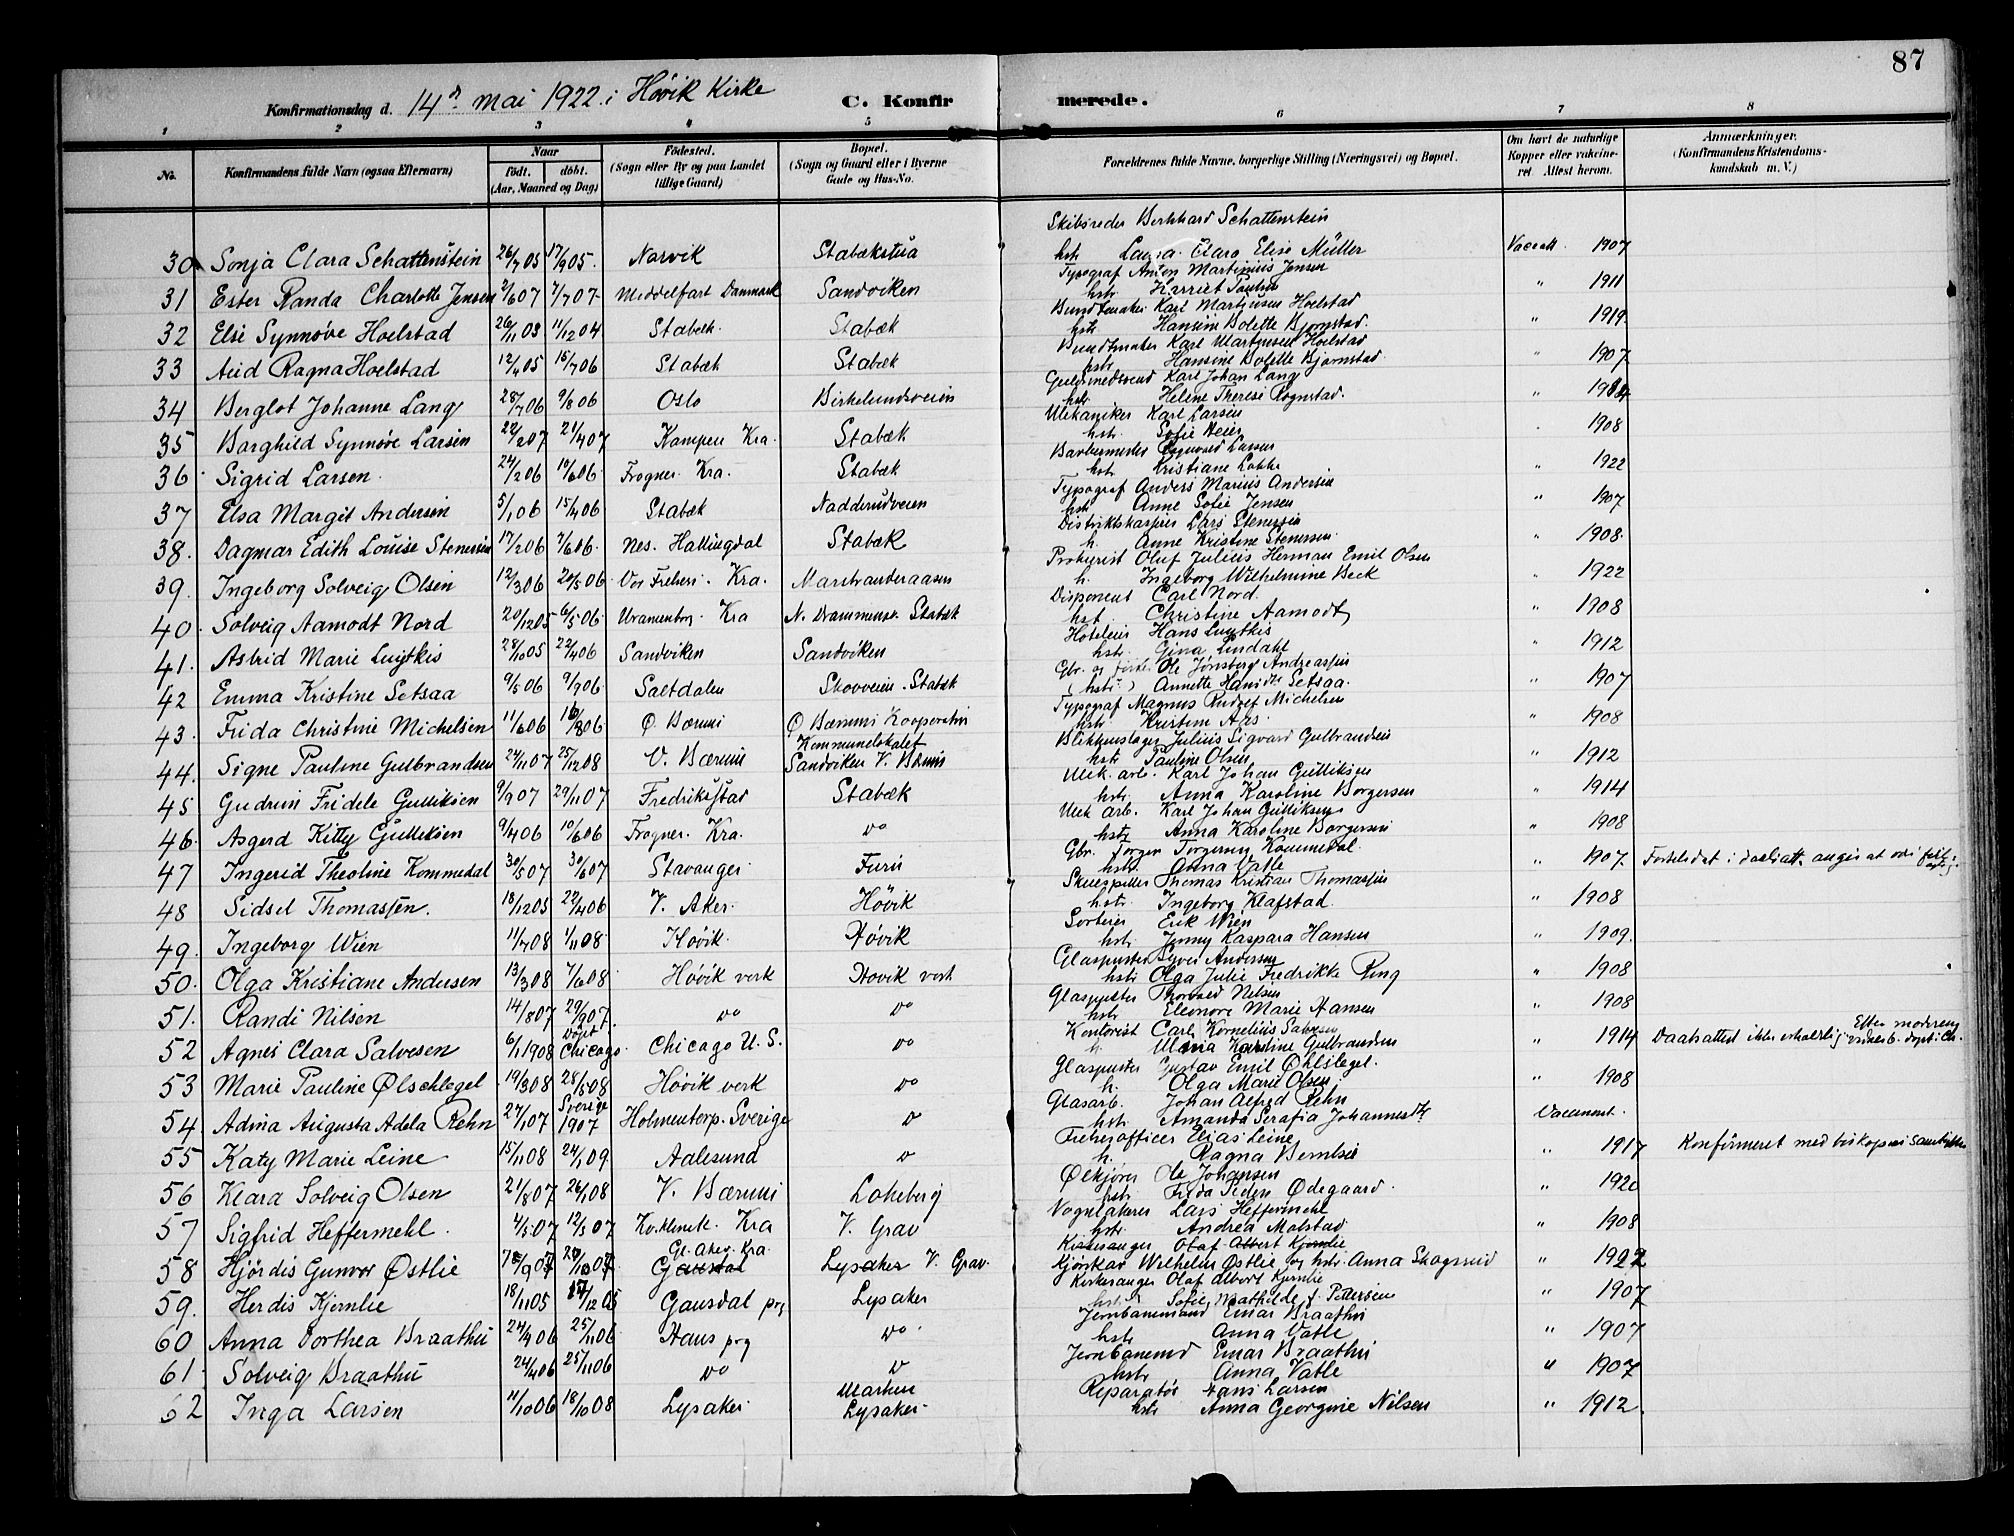 87
Konfirmationsdag d. 14de mai 1922 i Høvik Kirke C. Konfirmerede.
1 2 3 4 5 6 7 8
No. Konfirmandens fulde Navn (ogsaa Efternavn) Naar født. døbt. (Aar, Maaned og Dag) Fødested. (Sogn eller By og paa Landet tillige Gaard) Bopæl. (Sogn og Gaard eller i Byerne Gade og Hus-No.) Forældrenes fulde Navne, borgerlige Stilling (Næringsvei) og Bopæl. Om havt de naturlige Kopper eller vakcineret Attest herom. Anmærkninger. (Konfirmandens Kristendomskundskab m. V.)
Skibsreder Bernhard Schattenstein
30 Sonja Clara Schattenstein 26/7 05 17/9 05. Narvik Stabækstua hstr Laura Clara Elise Müller Vacc att. 1907
Typograf Anton Martinius Jensen
31 Ester Randa Charlotte Jensen 2/6 07 7/7 07 Middelfart Danmark Sandviken hstr Harriet Paulsen " 1911
Bundtmaker Karl Martinsen Hoelstad
32 Elsi Synnøve Hoelstad 26/11 03 11/12 04 Stabæk. Stabæk hstr Hansine Bolette Bjørnstad. " 1919
Bundtmaker Karl Martinsen Hoelstad
33 Aud Ragna Hoelstad 12/4 05 15/7 06 Stabæk Stabæk hstr Hansine Bolette Bjørnstad. " 1907
Guldsmedsvend Karl Johan Lang
34 Berglot Johanne Lang 28/7 06 9/8 06 Oslo Birkelundsveien hstr Helene Therese Rognstad. "
Mekaniker Karl Larsen
35 Borghild Synnøve Larsen 22/2 07 21/4 07 Kampen Kra. Stabæk hstr. Sofie Meier 1908
Barbermester Ragnvald Larsen
36 Sigrid Larsen. 24/2 06 10/6 06 Frogner. Kra. Stabæk hstr Kristiane Løkke " 1922
Typograf Anders Marius Andersen
37 Elsa Margit Andersen 5/1 06 15/4 06 Stabæk Nadderudveien hstr Anne Sofie Jensen " 1907
Distriktskasserer Lars Stenersen
38. Dagmar Edith Louise Stenersen 17/2 06 7/6 06. Nes. Hallingdal Stabæk h. Anne Kristine Stenersen. " 1908.
Prokurist Oluf Julius Herman Emil Olsen
39. Ingeborg Solveig Olsen 12/3 06 20/5 06. Vor Frelseri. Kra. Marstranderaasen h. Ingeborg Wilhelmine Beck " 1922
Disponent Carl Nord.
40. Solveig Aamodt Nord 20/12 05 6/5 06. Uranienborg. Kra N. Drammensv. Stabæk hst Christine Aamodt " 1908
Hoteleier Hans Luytkis
41. Astrid Marie Luytkis 28/10 05 22/4 06 Sandviken Sandviken hstr. Gina Lindahl " 1912
Gbr. og Ole Jønsberg Andreassen
42 Emma Kristine Setsaa 9/5 06 9/9 06. Saltdalen Skovveien. Stabæk (hstr) Annette Hansdtr Setsaa. " 1907
Typograf Magnus Rudolf Michelsen
43. Frida Christine Michelsen 11/6 06 Ø. Bærum Ø Bærums Kooperativ hstr. Kristine Aas. " 1908
Kommunelokalet Blikkenslager Julius Sigvard Gulbrandsen
44. Signe Pauline Gulbrandsen 24/11 07 25/12 08 V. Bærum Sandviken V. Bærum hstr Pauline Olsen " 1912
Mek. arb. Karl Johan Gulliksen
45 Gudrun Fridele Gulliksen 9/9 07 29/11 07 Fredrikstad Stabæk hstr. Anna Karoline Borgersen " 1914
Mek arb. Karl Johan Gulliksen
46. Asgerd Kitty Gulliksen 9/4 06 10/6 06 Frogner. Kra. Do hstr Anna Karoline Borgersen " 1908
Gbr. Torger Torgersen Kommedal.
47 Ingerid Theoline Kommedal 30/5 07 30/6 07 Stavanger Furu hstr. Anna Vatle " 1907. Fødselsdat i daabsatt. angis at være
Skuespiller Thomas Kristian Thomassen
48 Sidsel Thomassen. 18/12 05 22/4 06 V. Aker. Høvik hstr. Ingeborg Klafstad. " 1908
Sorterer Erik Wien
49. Ingeborg Wien 11/7 08 1/11 08. Høvik. Høvik hstr. Jenny Kaspara Hansen " 1909.
Glaspuster Syver Andersen
50. Olga Kristiane Andersen 13/3 08 7/6 08 Høvik verk Høvik verk hstr Olga Julie Fredrikke Ring " 1908
Glaspuster Thorvald Nilsen
51. Randi Nilsen 14/8 07 29/9 07. Do Do hstr Eleonore Marie Hansen " 1908
Kontorist Carl Kornelius Salvesen
52 Agnes Clara Salvesen 6/1 1908 Døpt Chicago. Chicago U. S. Do h. Maria Karoline Gulbrandsen " 1914 Daabsattest ikke erholdelig Efter moderens vidnesb. døpt i Ch.
Glaspuster Gustav Emil Øhlslegel.
53 Marie Pauline Ølschlegel 19/3 08 28/5 08 Høvik verk Do h. Olga Marie Olsen " 1908
Glasarb. Johan Alfred Rehn
54. Adina Augusta Adela Rehn 27/1 07 Sverige 1907 Holmentorp. Sverige Do hstr. Amanda Serafia Johannesdtr Vaccinert.
Frelserofficer Elias Leine
55 Katy Marie Leine 15/11 08 24/1 09 Aalesund Do h. Ragna Berntsen " 1917 Konfirmeret med biskopens samtykke
Ølkjører Ole Johansen
56 Klara Solveig Olsen 21/8 07 26/1 08 V. Bærum Løkeberg hstr. Frida Ødegaard. "
Vognlakerer Lars Heffermehl
57 Sigfrid Heffermehl. 4/3 07 12/5 07 Kra V. Grav hstr. Andrea Molstad " 1908
Kirkesanger Olaf Albert Kjernlie
58 Hjördis Gunvor Østlie Gl. Aker. Kra. Gausdal Lysaker V. Grav. Kjørekar Wilhelm Østlie og hstr. Anna Skogsrud " 1922
Kirkesanger Olaf Albert Kjernlie
59. Herdis Kjernlie 18/11 05 17/12 05 Gausdal prg Lysaker hstr. Sofie Mathilde f. Pettersen " 1907
Jernbanemand Einar Braathu
60 Anna Dorthea Braathu 24/4 06 25/11 06 Haus prg Do. hstr Anna Vatle " 1907
Jernbanemd Einar Braathu
61. Solveig Braathu 24/4 06 25/11 06 Do Do hstr. Anna Vatle " 1907
Marken Reparatør Hans Larsen
62 Inga Larsen 11/10 06 18/10 08 Lysaker Lysaker. hstr Anna Georgine Nilsen " 1912.